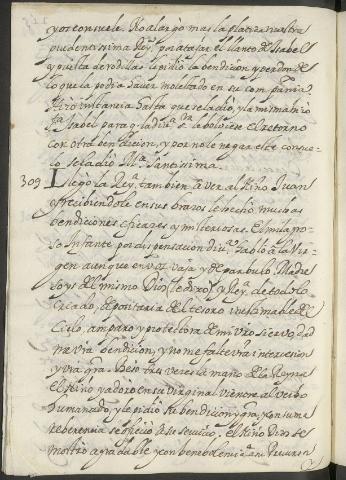 y os consuele. No alargó mas la platica nuestra
prudentissima Reyª. por atajar el llanto de Isabel
y puesta de rodillas le pidió la bendicion y perdon de
lo que la podia aver molestado en su compañia.
Hizo instancia hasta que se la dió, y la misma hizo
Sª Isabel para q la divª. Sª. la bolviese el retorno
con otra bendicion, y por no le negar este consue-
lo se la dió Mª. Santissima.
309 Llegó la Reyª. tambien a ver al Niño Juan
y recibiendole en sus brazos le echó muchas
bendiciones eficazes y misteriosas. El milagro-
so Infante por dispensacion divª. habló a la Vir-
gen aunque en voz vaja y de parbulo. Madre
soys del mismo Dios (le dixo) y Reyª. de todo lo
criado, depositaria del tesoro inestimable del
Cielo, amparo y protectora de mi vro siervo, dad
me vra bendicion, y no me falte vra intercesion
y vra graª. Besó tres veces la mano de la Reyna
el Niño y adoró en su virginal vientre al verbo
humanado, y le pidió su bendicion y graª, y con suma
reberencia se ofreció a su servicio. El Niño Dios se
mostró agradable y con benebolencia a su Precurson